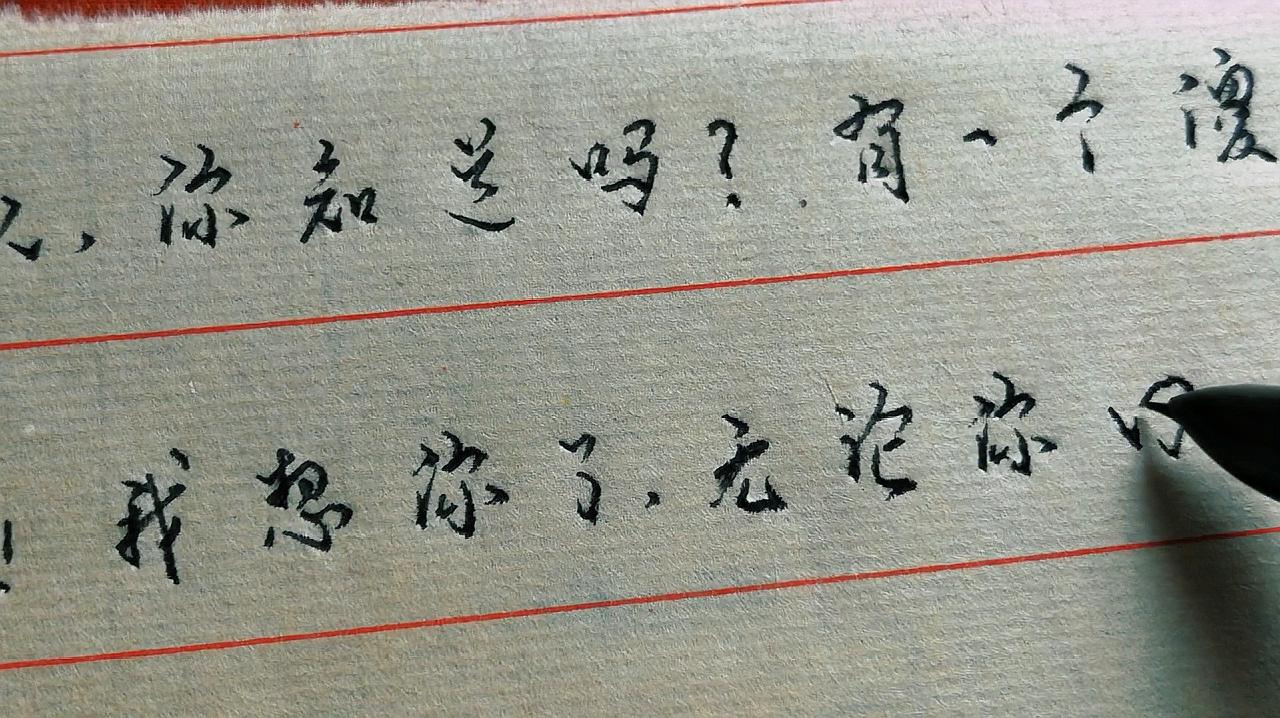 ，你知道吗？有一个傻
！我想你了，无论你